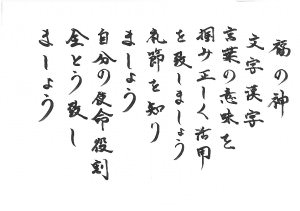 福の神
文字漢字
言葉の意味を
掴み正しく活用
を致しましょう
礼節を知り
ましょう
自分の使命役割
全とう致し
ましょう